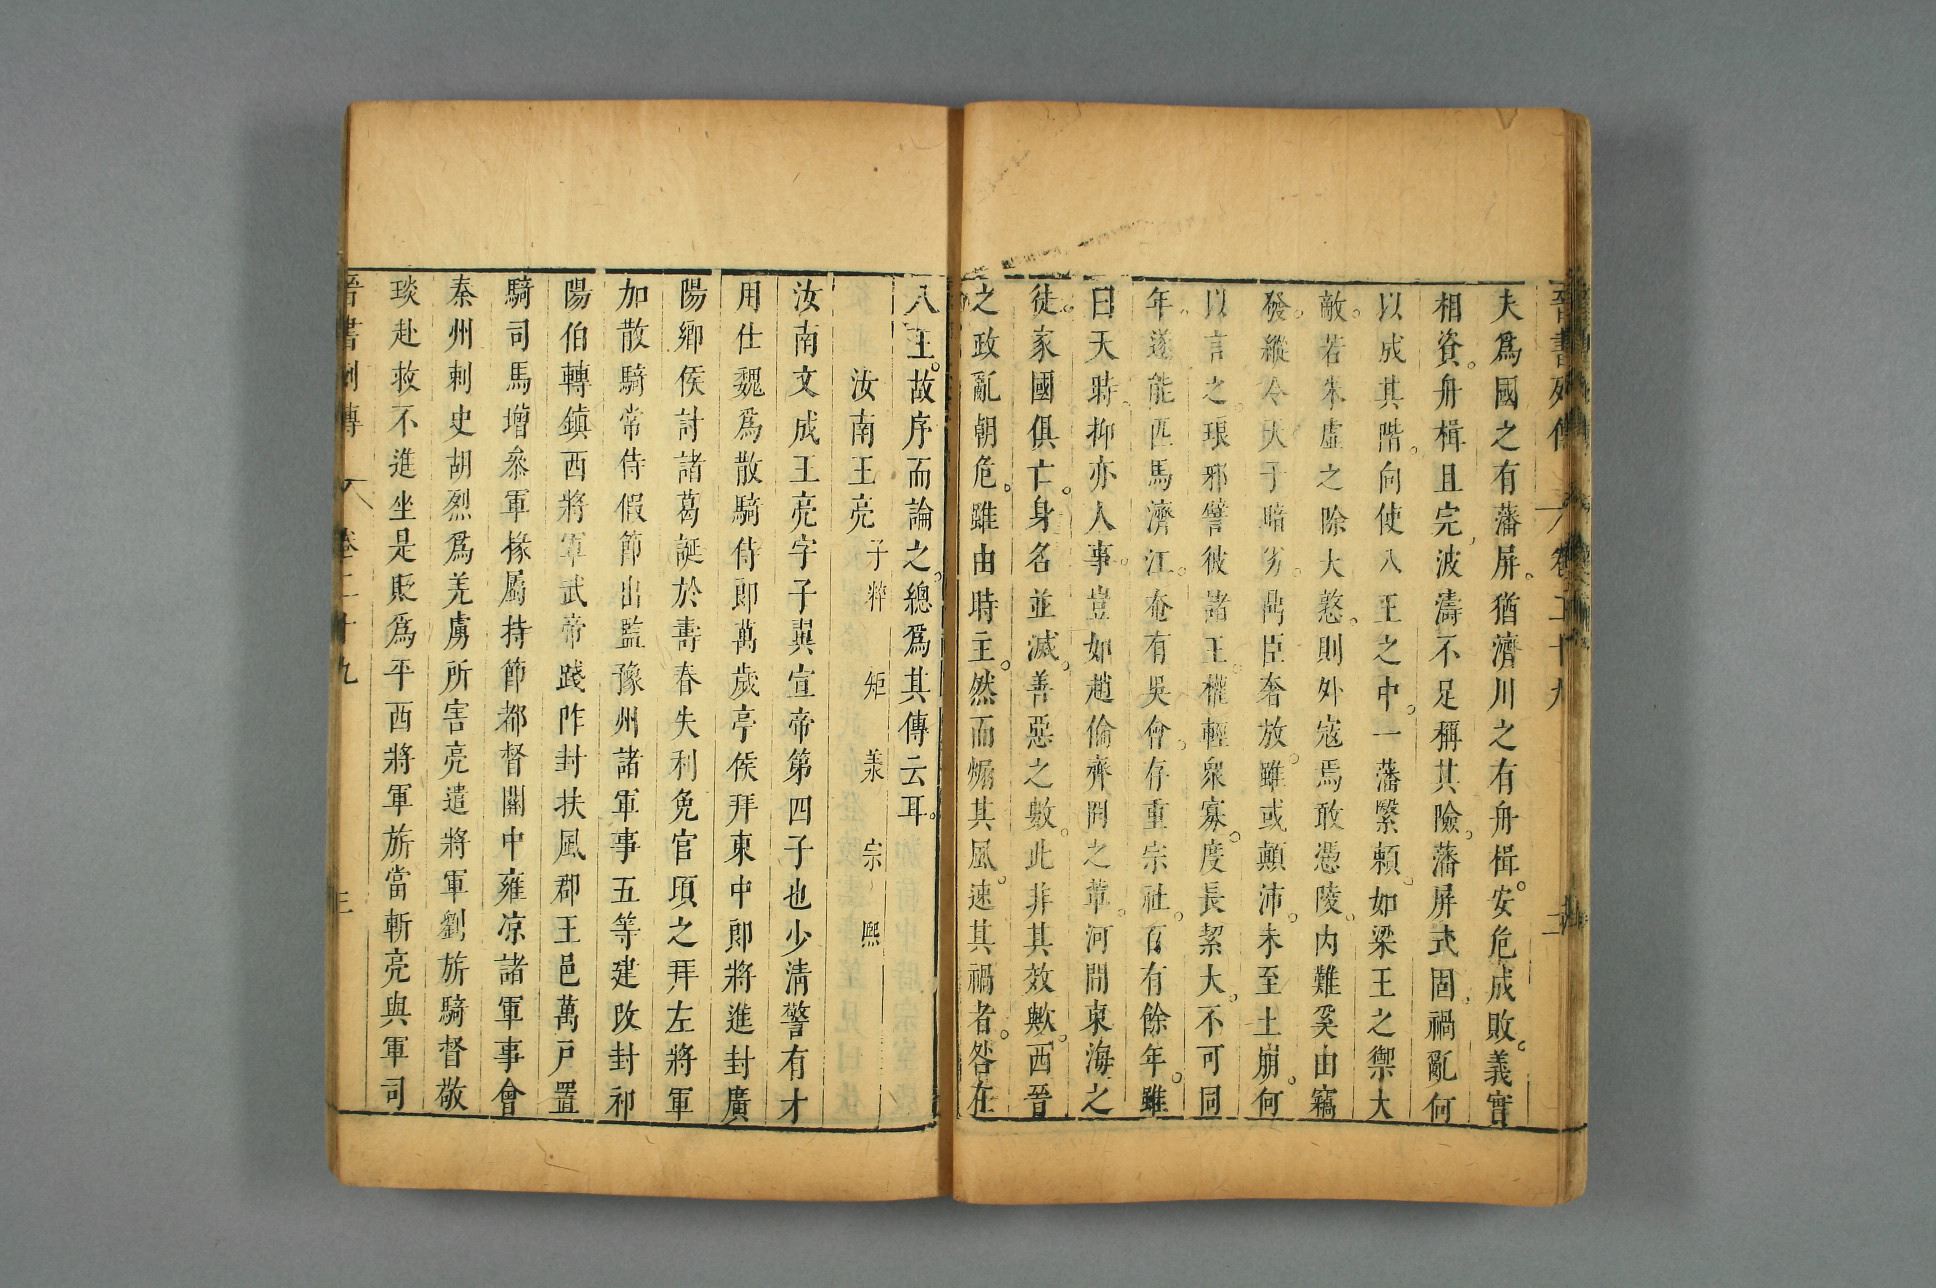 晉書列傳 八 卷二十九 二
夫爲國之有藩屏。猶濟川之有舟楫。安危成敗。義實
相資。舟楫且完。波濤不足稱其險。藩屏式固。禍亂何
以成其階。向使八王之中。一藩繄賴。如梁王之禦大
敵。若朱虛之除大憝。則外寇焉敢憑陵。內難奚由竊
發。縱令天子暗劣。鼎臣奢放。雖或顛沛。未至土崩。何
以言之。琅邪譬彼諸王。權輕衆寡。度長絜大。不可同
年。遂能匹馬濟江。奄有吳會。存重宗社。百有餘年。雖
曰天時。抑亦人事。豈如趙倫齊冏之輩。河間東海之
徒。家國俱亡。身名並滅。善惡之數。此非其效歟。西晉
之政亂朝危。雖由時主。然而煽其風。速其禍者。咎在
八王。故序而論之。總爲其傳云耳。
汝南王亮 子粹 矩 羕 宗 熙
汝南文成王亮字子翼宣帝第四子也少淸警有才
用仕魏爲散騎侍郎萬歲亭侯拜東中郎將進封廣
陽鄉侯討諸葛誕於壽春失利免官頃之拜左將軍
加散騎常侍假節出監豫州諸軍事五等建改封祁
陽伯轉鎮西將軍武帝踐阼封扶風郡王邑萬戶置
騎司馬增叅軍掾屬持節都督關中雍凉諸軍事會
秦州刺史胡烈爲羌虜所害亮遣將軍劉旂騎督敬
琰赴救不進坐是貶爲平西將軍旂當斬亮與軍司
晉書列傳 八 卷二十九 三